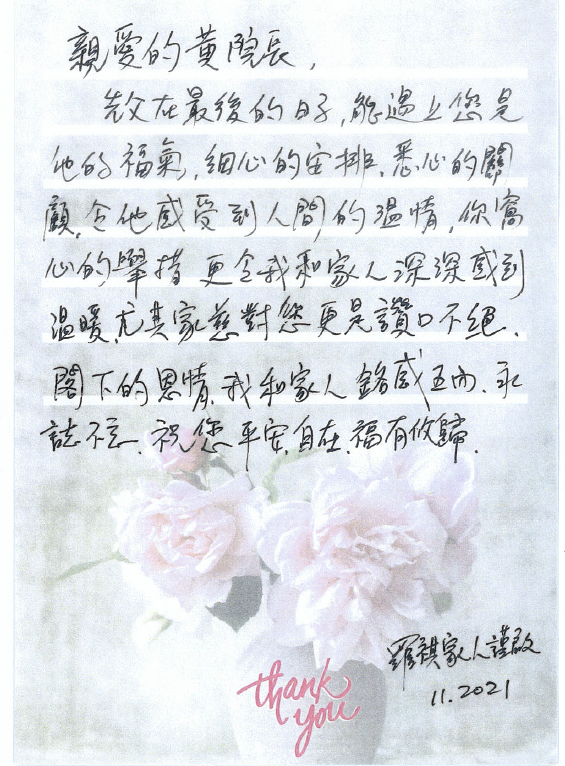 親愛的黃院長,
先父在最後的日子,能遇上您是
他的福氣,細心的安排、悉心的關
顧,令他感受到人間的溫情,你窩
心的舉措更令我和家人深深感到
溫暖,尤其家慈對您更是讚口不絕、
閣下的恩情,我和家人銘感五內、永
誌不忘、祝您平安,自在、福有攸歸.
家人謹啟
11.2021
thank
you